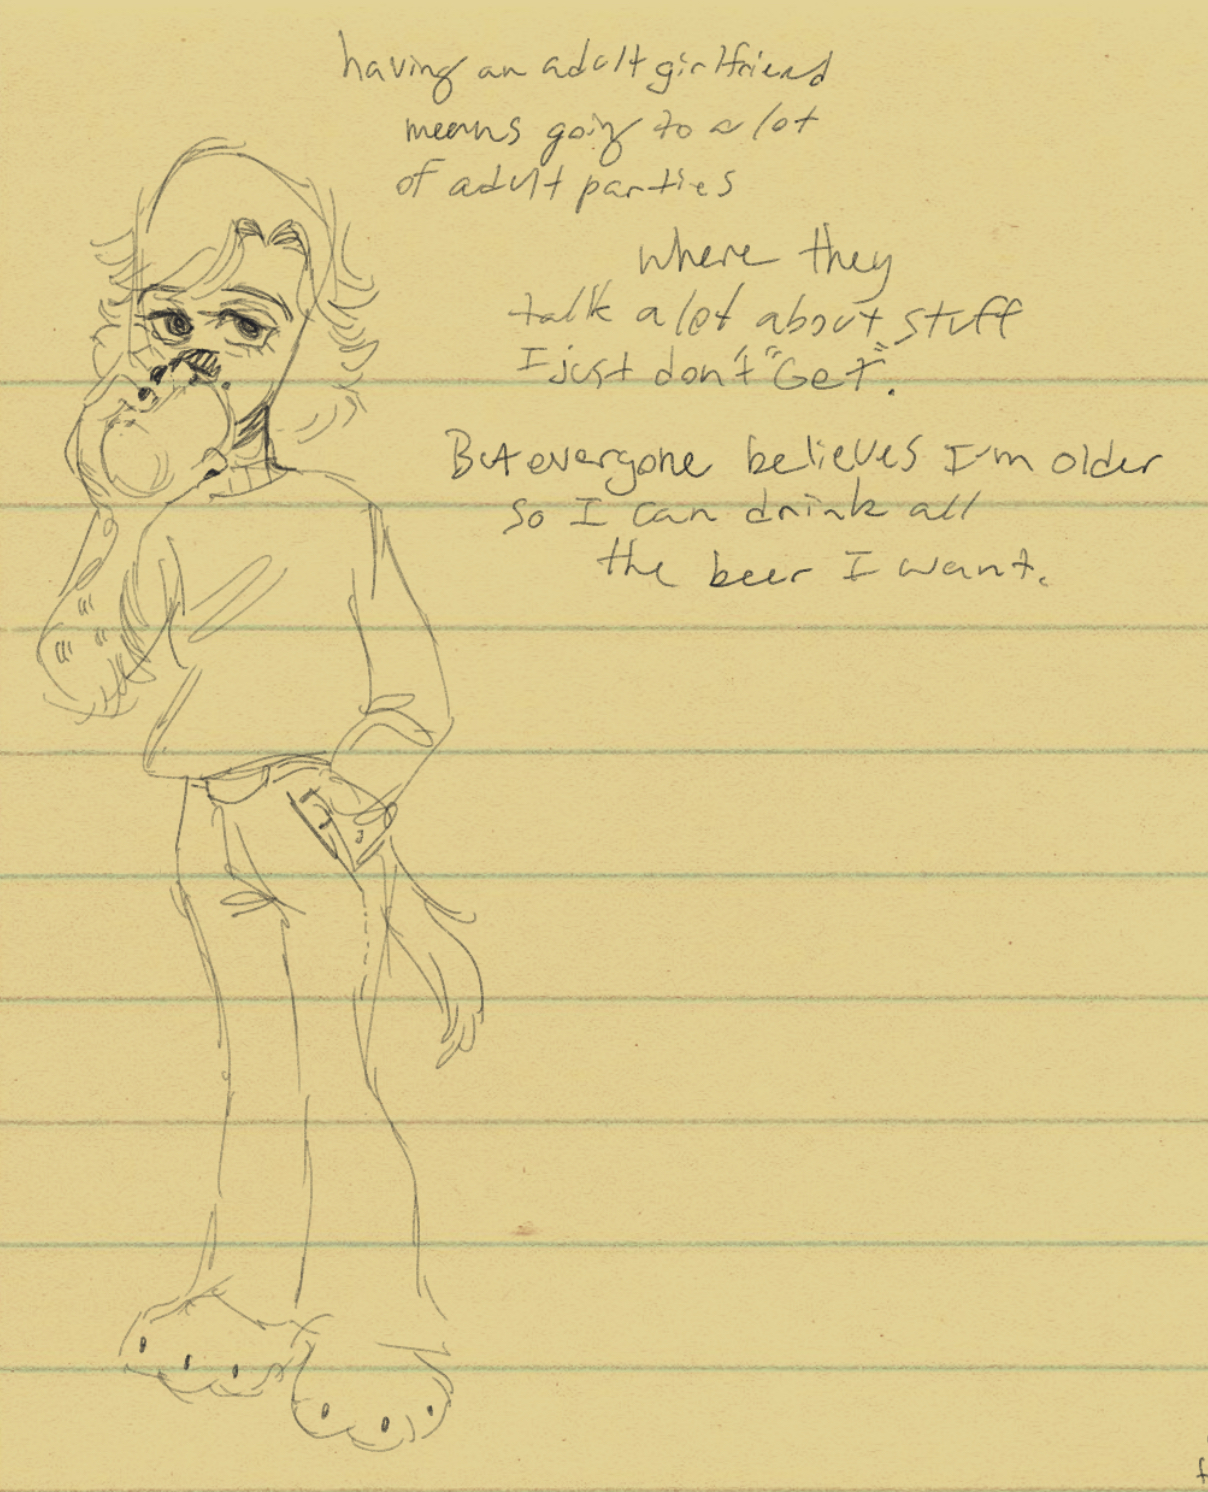 having an adult girlfriend
means going to a lot
of adult parties
where they
talk a lot about stuff
I just don't "Get".
But everyone believes I'm older
so I can drink all
the beer I want.